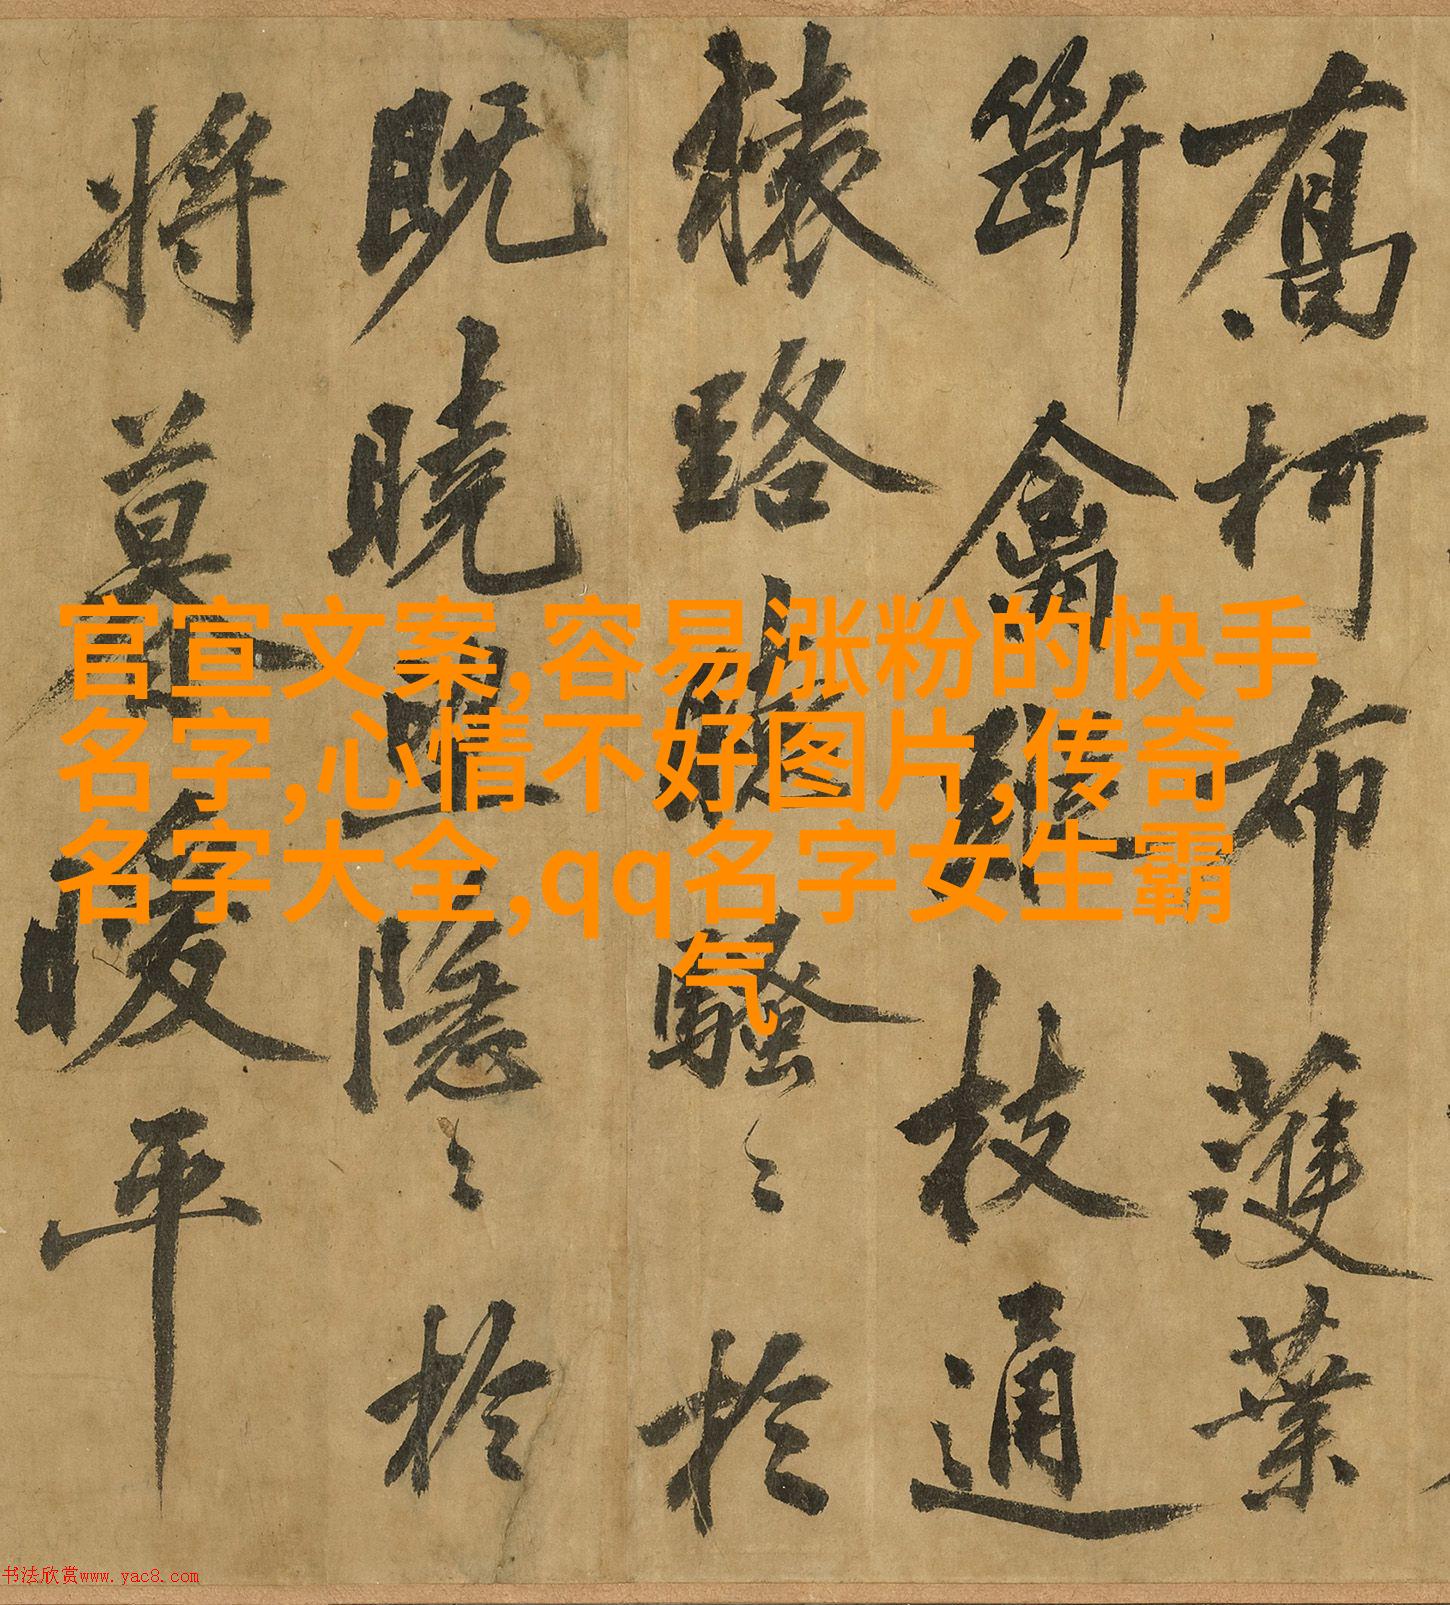 喬柯布濩葉
斷禽雖枝通
猿路騷〻於
既曉隱〻於
將暖平
官宣文案,容易涨粉的快手
名字,心情不好图片,传奇
名字大全,qq名字女生霸
气
书法欣赏www.yac8.com